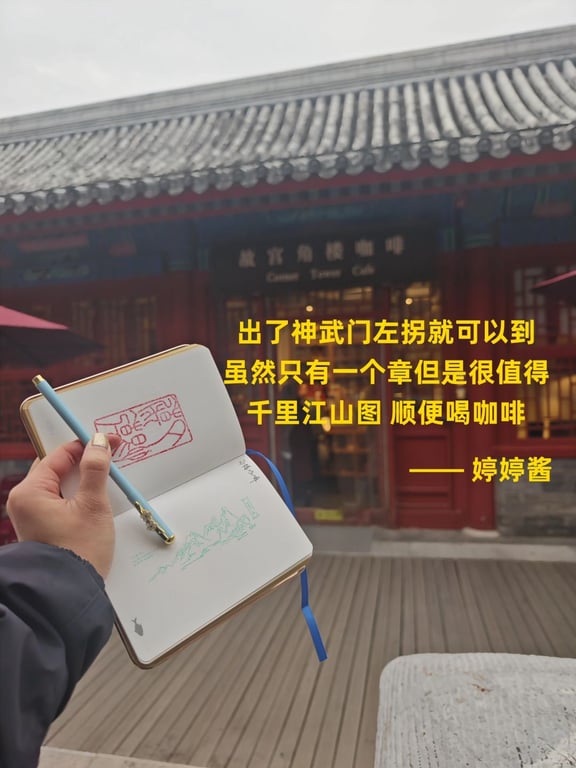 故宫角楼咖啡
Corner Tower Cafe
出了神武门左拐就可以到
虽然只有一个章但是很值得
千里江山图 顺便喝咖啡
—— 婷婷酱